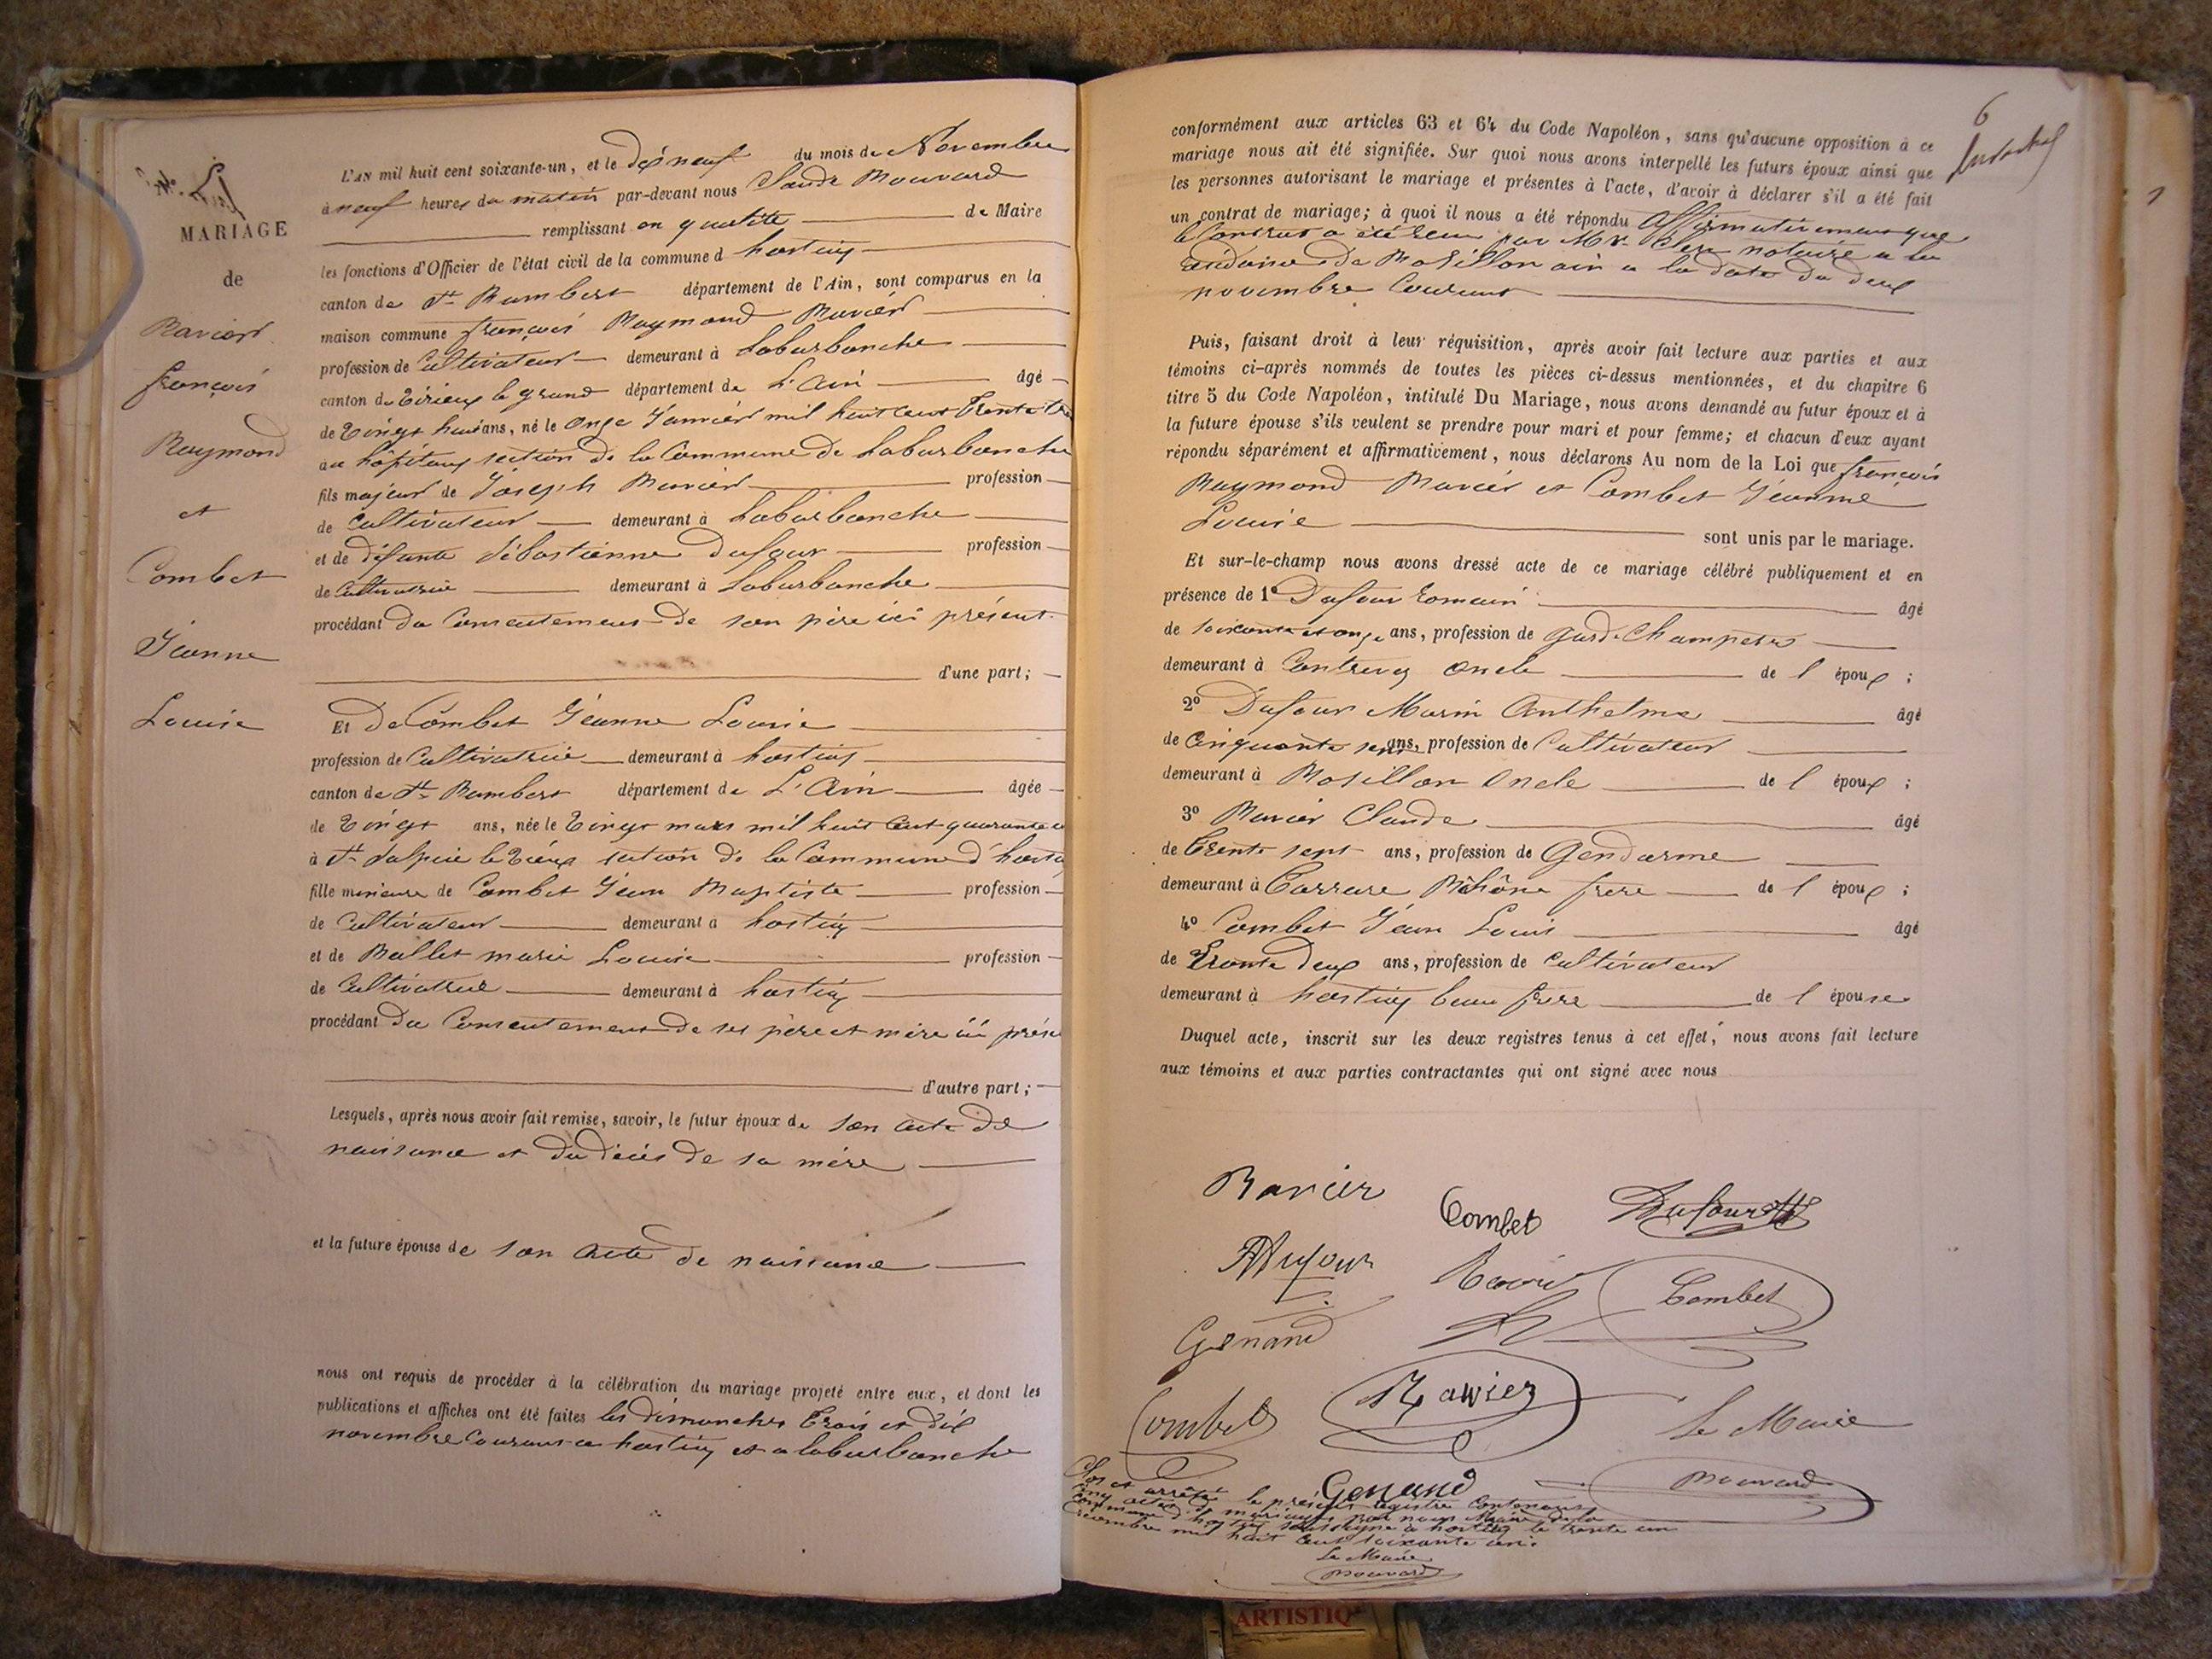 MARIAGE
de
Ravier
françois
Raymond
et
Combet
Jeanne
Louise
L'AN mil huit cent soixante-un, et le dix neuf du mois de Novembre
à neuf heures du matin par-devant nous Claude Bouvard
remplissant en qualité de Maire
les fonctions d'Officier de l'état civil de la commune d hostiaz
canton de St Rambert département de l'Ain, sont comparus en la
maison commune françois Raymond Ravier
profession de Cultivateur demeurant à Laburbanche
canton de Virieux le grand département de L'Ain âgé
de Vingt huit ans, né le onze Janvier mil huit cent trente trois
au hôpitaux section de la Commune de Laburbanche
fils majeur de Joseph Ravier profession
de Cultivateur demeurant à Laburbanche
et de défunte Sébastienne Dufour profession
de Cultivatrice demeurant à Laburbanche
procédant du Consentement de son père ici présent
d'une part;
Et De Combet Jeanne Louise
profession de Cultivatrice demeurant à hostiaz
canton de St Rambert département de L'Ain âgée
de Vingt ans, née le Vingt mars mil huit cent quarante u
à St Sulpice le Vieux section de la Commune d'hosti
fille mineure de Combet Jean Baptiste profession
de Cultivateur demeurant à hostiaz
et de Ballet marie Louise profession
de Cultivatrice demeurant à hostiaz
procédant du Consentement de ses père et mère ici prése
d'autre part;
Lesquels, après nous avoir fait remise, savoir, le futur époux de son acte de
naissance et du décès de sa mère
et la future épouse de son acte de naissance
nous ont requis de procéder à la célébration du mariage projeté entre eux, et dont les
publications et affiches ont été faites les dimanches trois et dix
novembre Courant a hostiaz et a laburbanche
6
conformément aux articles 63 et 64 du Code Napoléon, sans qu'aucune opposition à ce
mariage nous ait été signifiée. Sur quoi nous avons interpellé les futurs époux ainsi que
les personnes autorisant le mariage et présentes à l'acte, d'avoir à déclarer s'il a été fait
un contrat de mariage; à quoi il nous a été répondu affirmativement que
le Contrat a été reçu par Mr notaire a la
résidence de Rosillon ain a la date du deux
novembre Courant
Puis, faisant droit à leur réquisition, après avoir fait lecture aux parties et aux
témoins ci-après nommés de toutes les pièces ci-dessus mentionnées, et du chapitre 6
titre 5 du Code Napoléon, intitulé Du Mariage, nous avons demandé au futur époux et à
la future épouse s'ils veulent se prendre pour mari et pour femme; et chacun d'eux ayant
répondu séparément et affirmativement, nous déclarons Au nom de la Loi que françois
Raymond Ravier et Combet Jeanne
Louise
sont unis par le mariage.
Et sur-le-champ nous avons dressé acte de ce mariage célébré publiquement et en
présence de 1o Dufour Romain âgé
de soixante et onze ans, profession de garde Champetre
demeurant à Contrevoz oncle de l époux ;
2o Dufour Marin Anthelme âgé
de Cinquante sept ans, profession de Cultivateur
demeurant à Rosillon oncle de l époux ;
3o Ravier Claude âgé
de trente sept ans, profession de Gendarme
demeurant à Tarrare Rhône frere de l époux ;
4o Combet Jean Louis âgé
de Trente deux ans, profession de Cultivateur
demeurant à hostiaz beau frere de l épouse
Duquel acte, inscrit sur les deux registres tenus à cet effet, nous avons fait lecture
aux témoins et aux parties contractantes qui ont signé avec nous
Ravier Combet Dufour
Dufour Ravier Combet
Genand
Combet Ravier Le Maire
Genand Bouvard
Clos et arrêté le présent registre Contenant
cinq actes de mariages par nous Maire de la
commune d'hostiaz soussigné a hostiaz le trente un
décembre mil huit cent soixante un.
Le Maire
Bouvard
ARTISTIQ